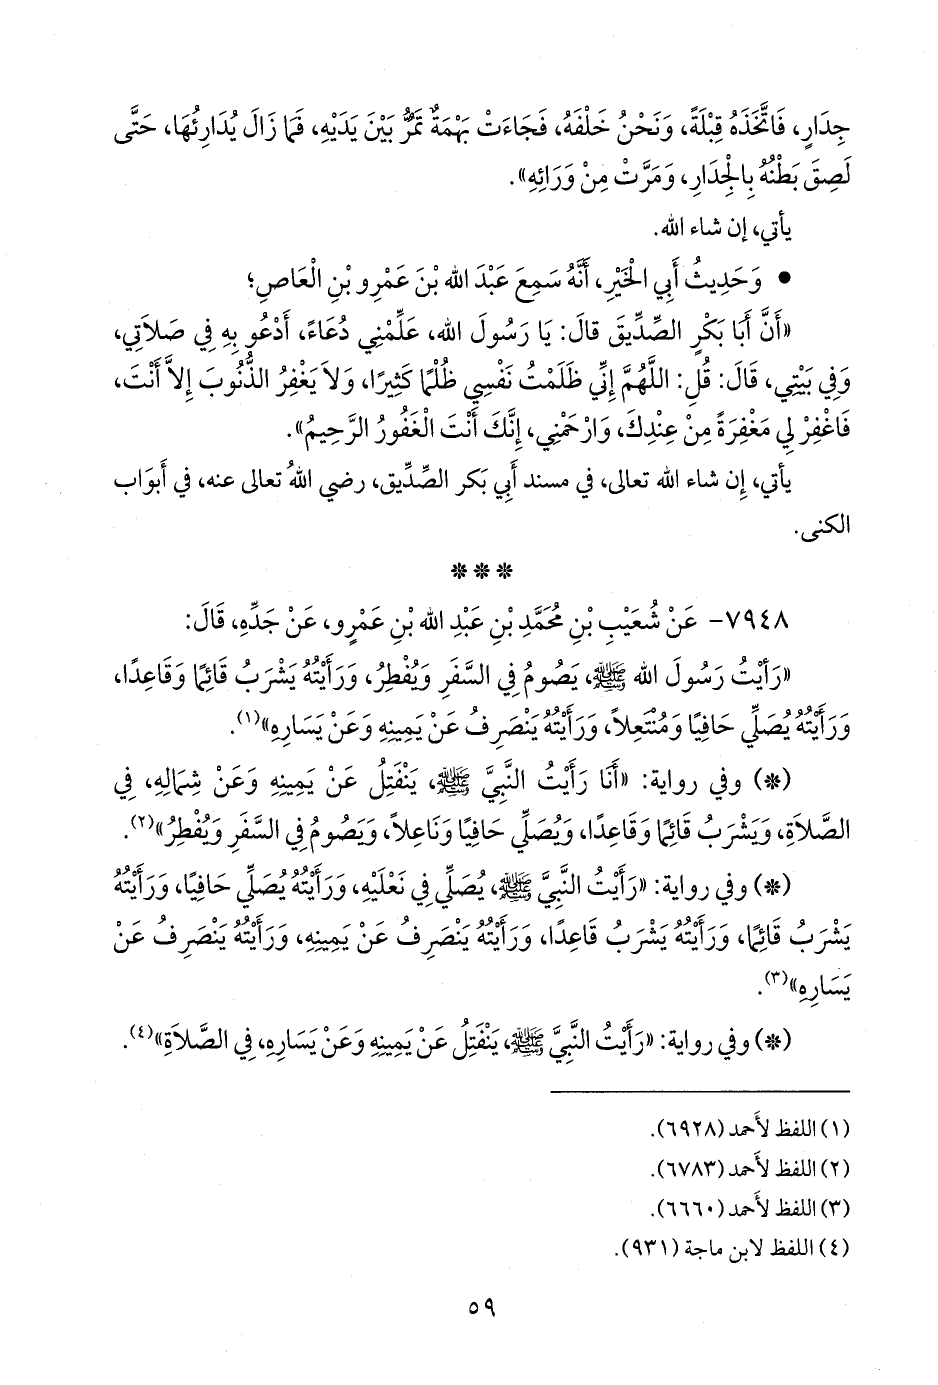 جِدَارٍ، فَاتَّخَذَهُ قِبْلَةً، وَنَحْنُ خَلْفَهُ، فَجَاءَتْ بَهْمَةٌ تَمُرُّ بَيْنَ يَدَيْهِ، فَمَا زَالَ يُدَارِئُهَا، حَتَّى
لَصِقَ بَطْنُهُ بِالْجِدَارِ، وَمَرَّتْ مِنْ وَرَائِهِ».
يأتي، إن شاء الله.
● وَحَدِيثُ أَبِي الْخَيْرِ، أَنَّهُ سَمِعَ عَبْدَ الله بْنَ عَمْرِو بْنِ الْعَاصِ؛
«أَنَّ أَبَا بَكْرٍ الصِّدِّيقَ قَالَ: يَا رَسُولَ الله، عَلِّمْنِي دُعَاءً، أَدْعُو بِهِ فِي صَلاَتِي،
وَفِي بَيْتِي، قَالَ: قُلِ: اللَّهُمَّ إِنِّي ظَلَمْتُ نَفْسِي ظُلْمًا كَثِيرًا، وَلاَ يَغْفِرُ الذُّنُوبَ إِلاَّ أَنْتَ،
فَاغْفِرْ لِي مَغْفِرَةً مِنْ عِنْدِكَ، وَارْحَمْنِي، إِنَّكَ أَنْتَ الْغَفُورُ الرَّحِيمُ».
يأتي، إِن شاء الله تعالى، في مسند أَبي بَكر الصِّدِّيق، رضي اللهُ تعالى عنه، في أَبوَاب
الكنى.
***
٧٩٤٨- عَنْ شُعَيْبِ بْنِ مُحَمَّدِ بْنِ عَبْدِ الله بْنِ عَمْرٍو، عَنْ جَدِّهِ، قَالَ:
«رَأَيْتُ رَسُولَ الله ﷺ، يَصُومُ فِي السَّفَرِ وَيُفْطِرُ، وَرَأَيْتُهُ يَشْرَبُ قَائِمًا وَقَاعِدًا،
وَرَأَيْتُهُ يُصَلِّي حَافِيًا وَمُنْتَعِلاً، وَرَأَيْتُهُ يَنْصَرِفُ عَنْ يَمِينِهِ وَعَنْ يَسَارِهِ»(١).
(*) وفي رواية: «أَنَا رَأَيْتُ النَّبِيَّ ﷺ، يَنْفَتِلُ عَنْ يَمِينِهِ وَعَنْ شِمَالِهِ، فِي
الصَّلاَةِ، وَيَشْرَبُ قَائِمًا وَقَاعِدًا، وَيُصَلِّي حَافِيًا وَنَاعِلاً، وَيَصُومُ فِي السَّفَرِ وَيُفْطِرُ»(٢).
(*) وفي رواية: «رَأَيْتُ النَّبِيَّ ﷺ، يُصَلِّي فِي نَعْلَيْهِ، وَرَأَيْتُهُ يُصَلِّي حَافِيًا، وَرَأَيْتُهُ
يَشْرَبُ قَائِمًا، وَرَأَيْتُهُ يَشْرَبُ قَاعِدًا، وَرَأَيْتُهُ يَنْصَرِفُ عَنْ يَمِينِهِ، وَرَأَيْتُهُ يَنْصَرِفُ عَنْ
يَسَارِهِ»(٣).
(*) وفي رواية: «رَأَيْتُ النَّبِيَّ ﷺ، يَنْفَتِلُ عَنْ يَمِينِهِ وَعَنْ يَسَارِهِ، فِي الصَّلاَةِ»(٤).
(١) اللفظ لأَحمد (٦٩٢٨).
(٢) اللفظ لأَحمد (٦٧٨٣).
(٣) اللفظ لأَحمد (٦٦٦٠).
(٤) اللفظ لابن ماجة (٩٣١).
٥٩